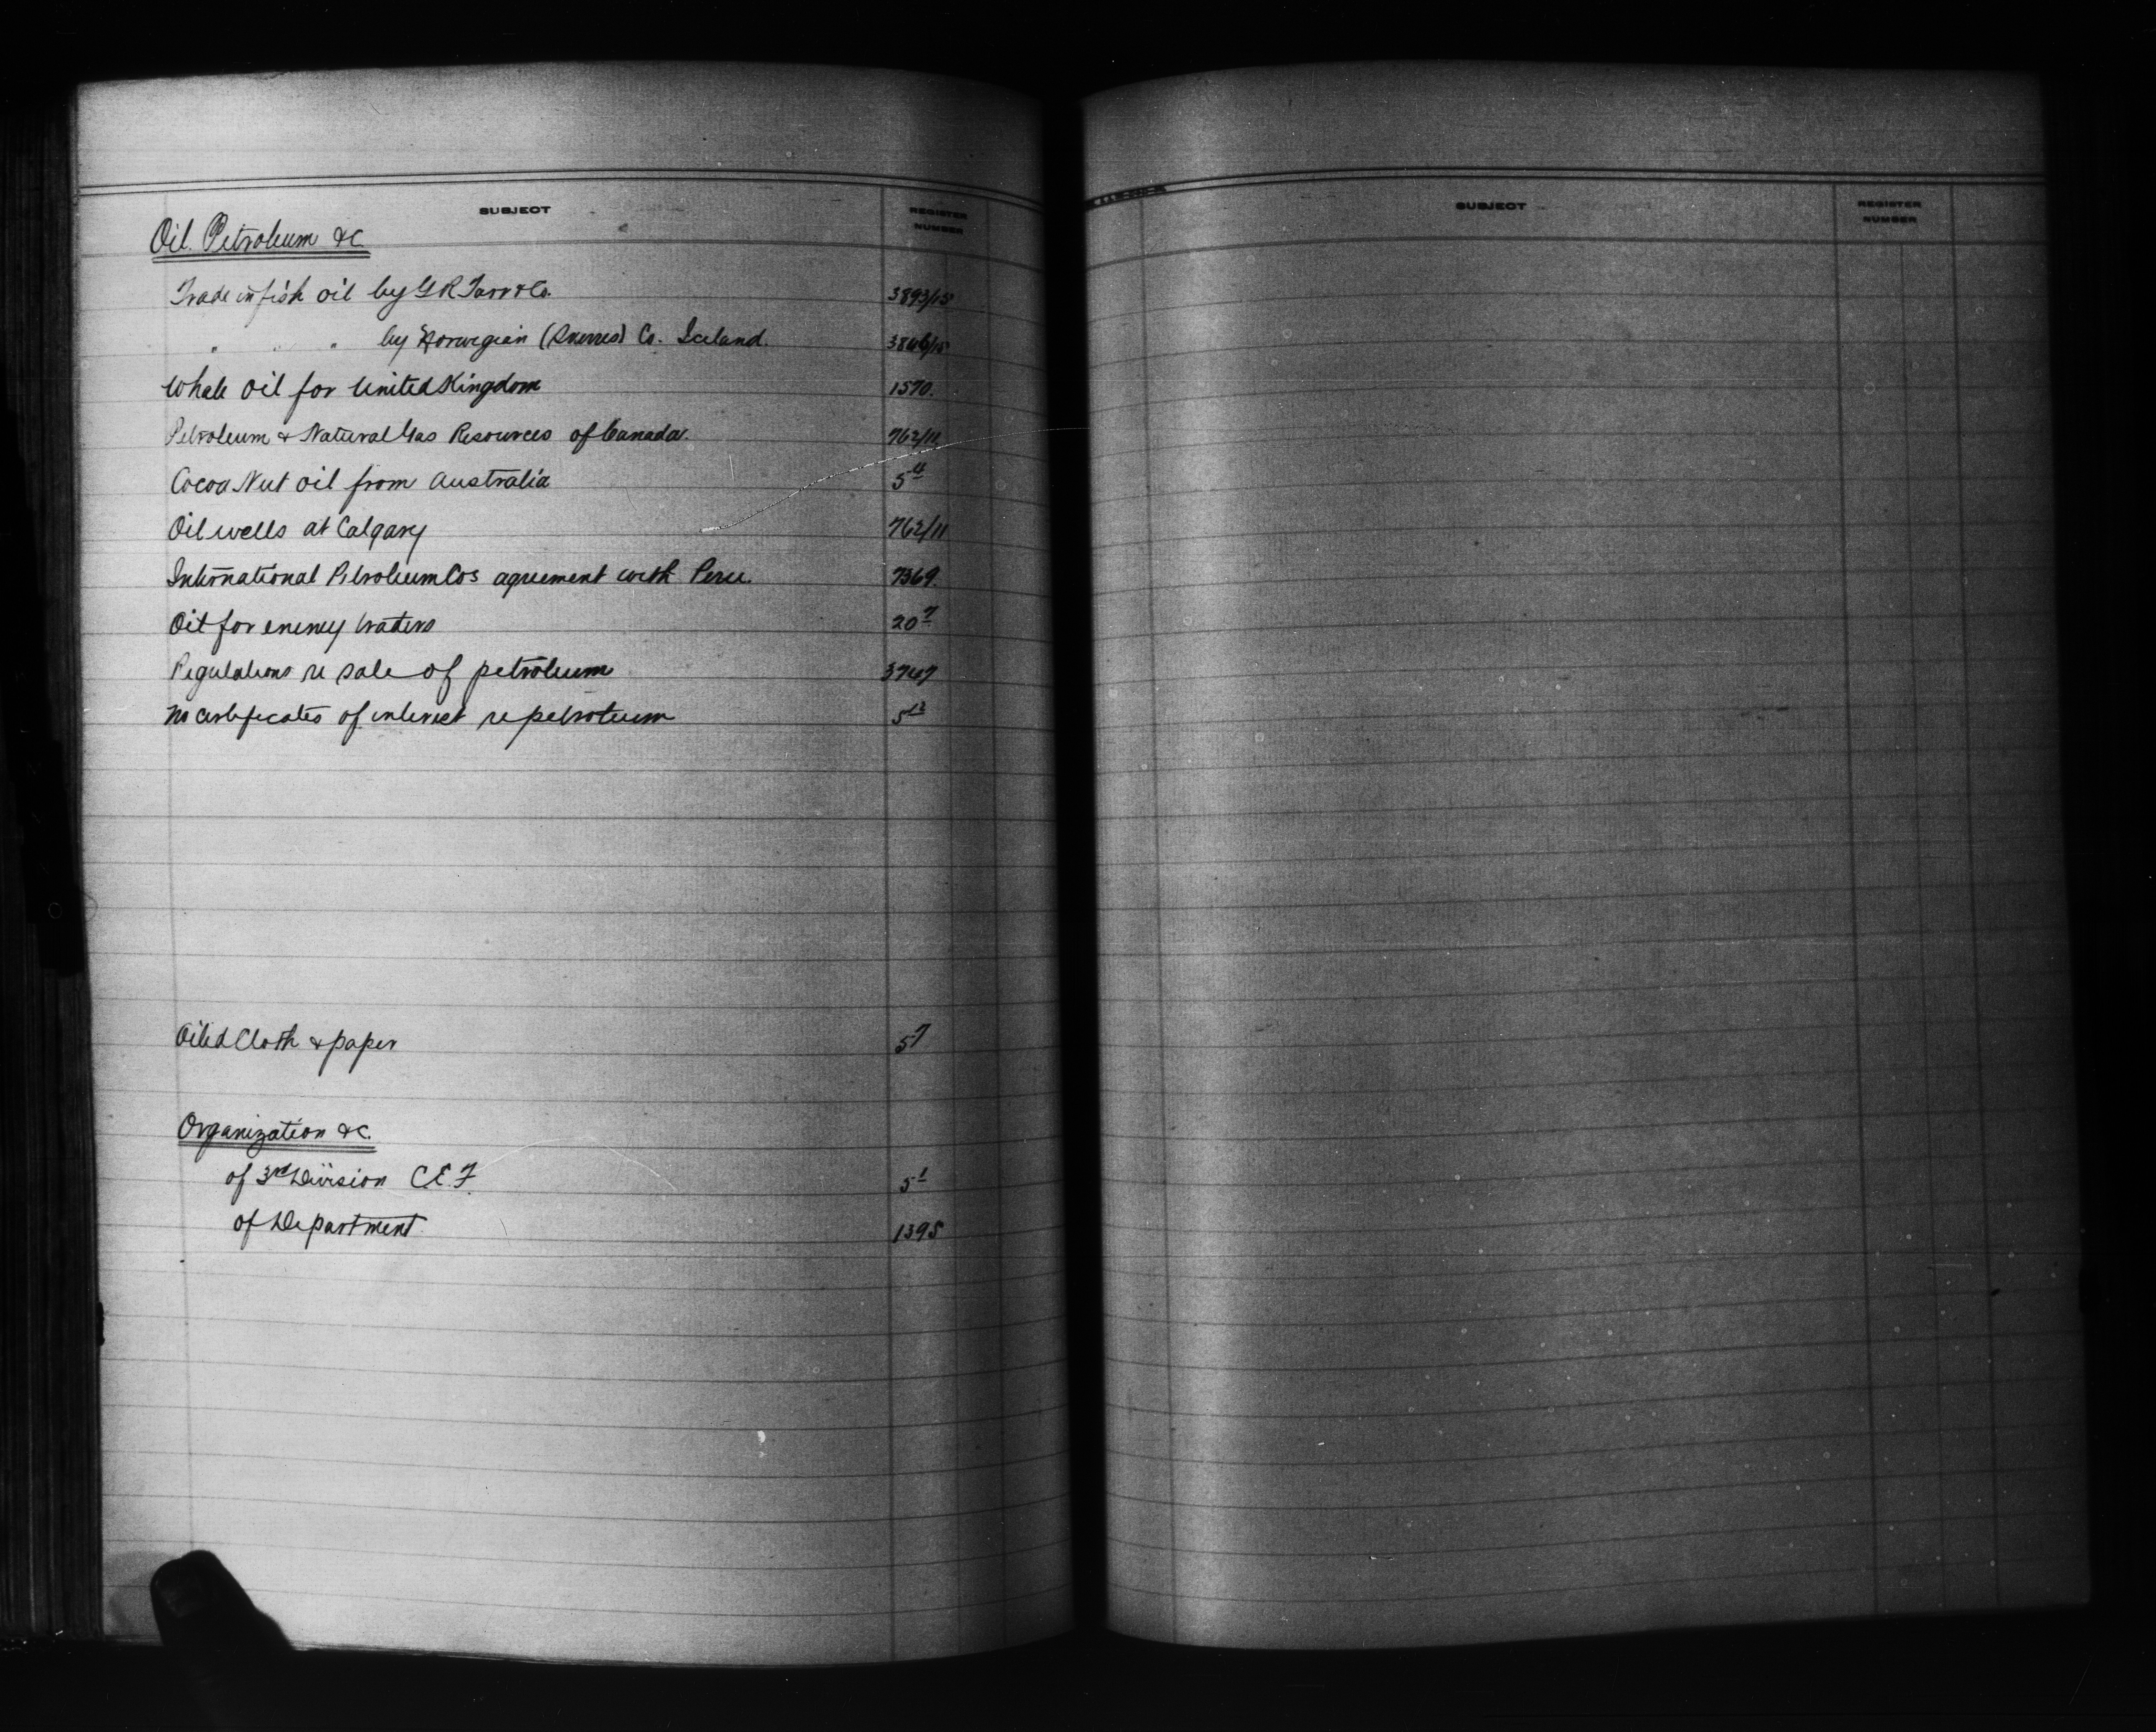 SUBJECT REGISTER NUMBER
Oil. Petroleum &c
Trade in fish oil by G R Tarr & Co. 3893/15
" " " by Norwegian () Co. Iceland. 3846/15
Whale oil for United Kingdom 1570.
Petroleum & Natural Gas Resources of Canada. 762/11
Cocoa Nut oil from Australia 5 4
Oil wells at Calgary 762/11
International Petroleum Cos agreement with Peru. 7369.
Oil for enemy traders 20 7
Regulations re sale of petroleum 3747
No certificates of interest re petroleum 5 12
Oiled Cloth & paper 5 7
Organization &c.
of 3rd Division C.E.F. 5 1
of Department 1395
SUBJECT REGISTER NUMBER